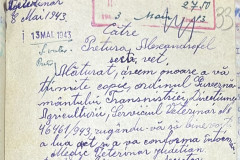 8 Mai 1943.
2750
3 Mai
13 MAI 1943
33
Către
Pretura, Alexandrfel
serv. vet.
Alăturat, avem onoare a vă
trimite copie, ordinul Guvernă
mântului Transnistriei, Direcțiunea
Agriculturii, Serviciul Veterinar No
46461/943, rugându-vă să bine voiți
a lua act și a vă conforma întocmai
Medic Veterinar Județean